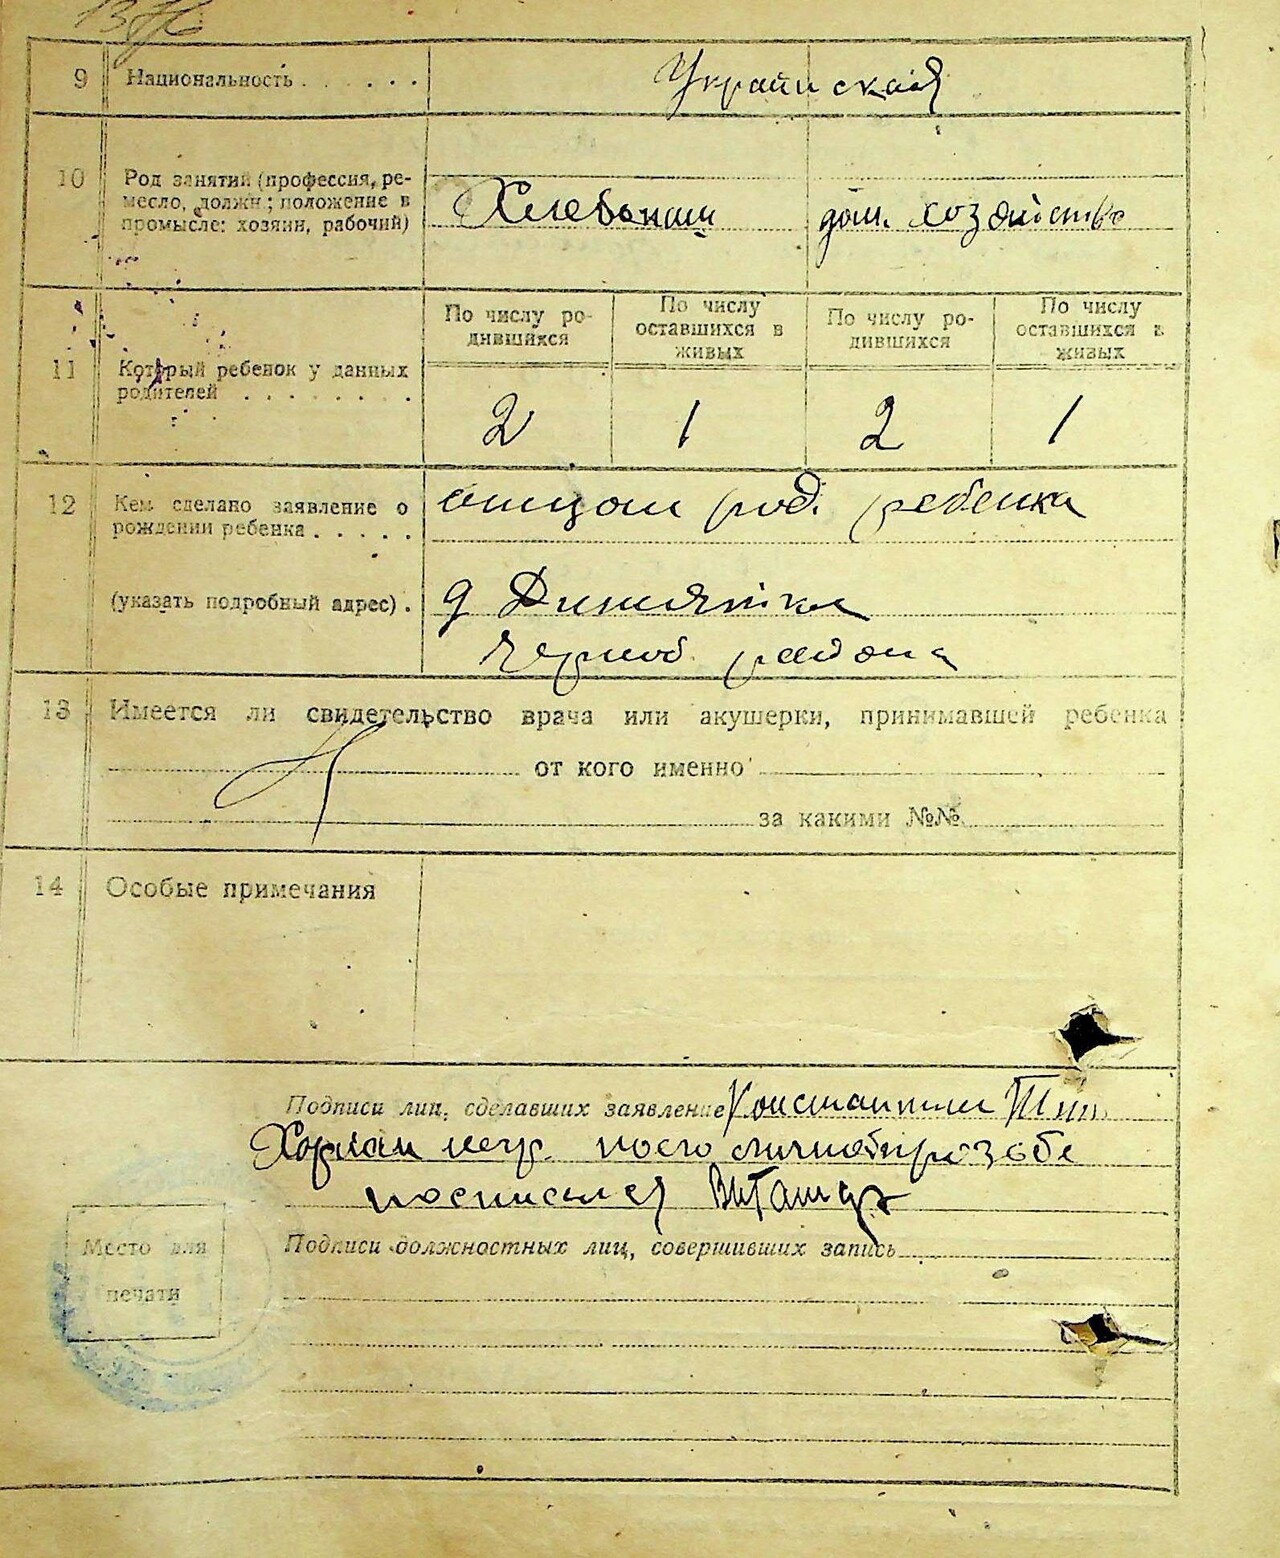 9 Национальность . . . . . . Украинская
10 Род занятий (профессия, ре-
месло, должн; положение в
промысле: хозяин, рабочий)
Хлебопаш дом. хозяйство
По числу ро-
дившихся
По числу
оставшихся в
живых
По числу ро-
дившихся
По числу
оставшихся в
живых
11 Который ребенок у данных
родителей . . . . . . . .
2 1 2 1
12 Кем сделано заявление о
рождении ребенка . . . . .
отцом род. ребенка
(указать подробный адрес) .
д
района
13 Имеется ли свидетельство врача или акушерки, принимавшей ребенка
от кого именно
за какими №№
14 Особые примечания
Подписи лиц, сделавших заявление Константин
негр. по его личной прозьбе
росписался
Подписи должностных лиц, совершивших запись
Место для
печати